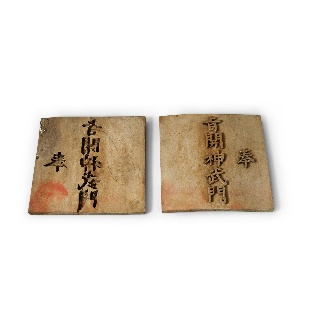 奉
旨開神武門
奉
旨開神武門